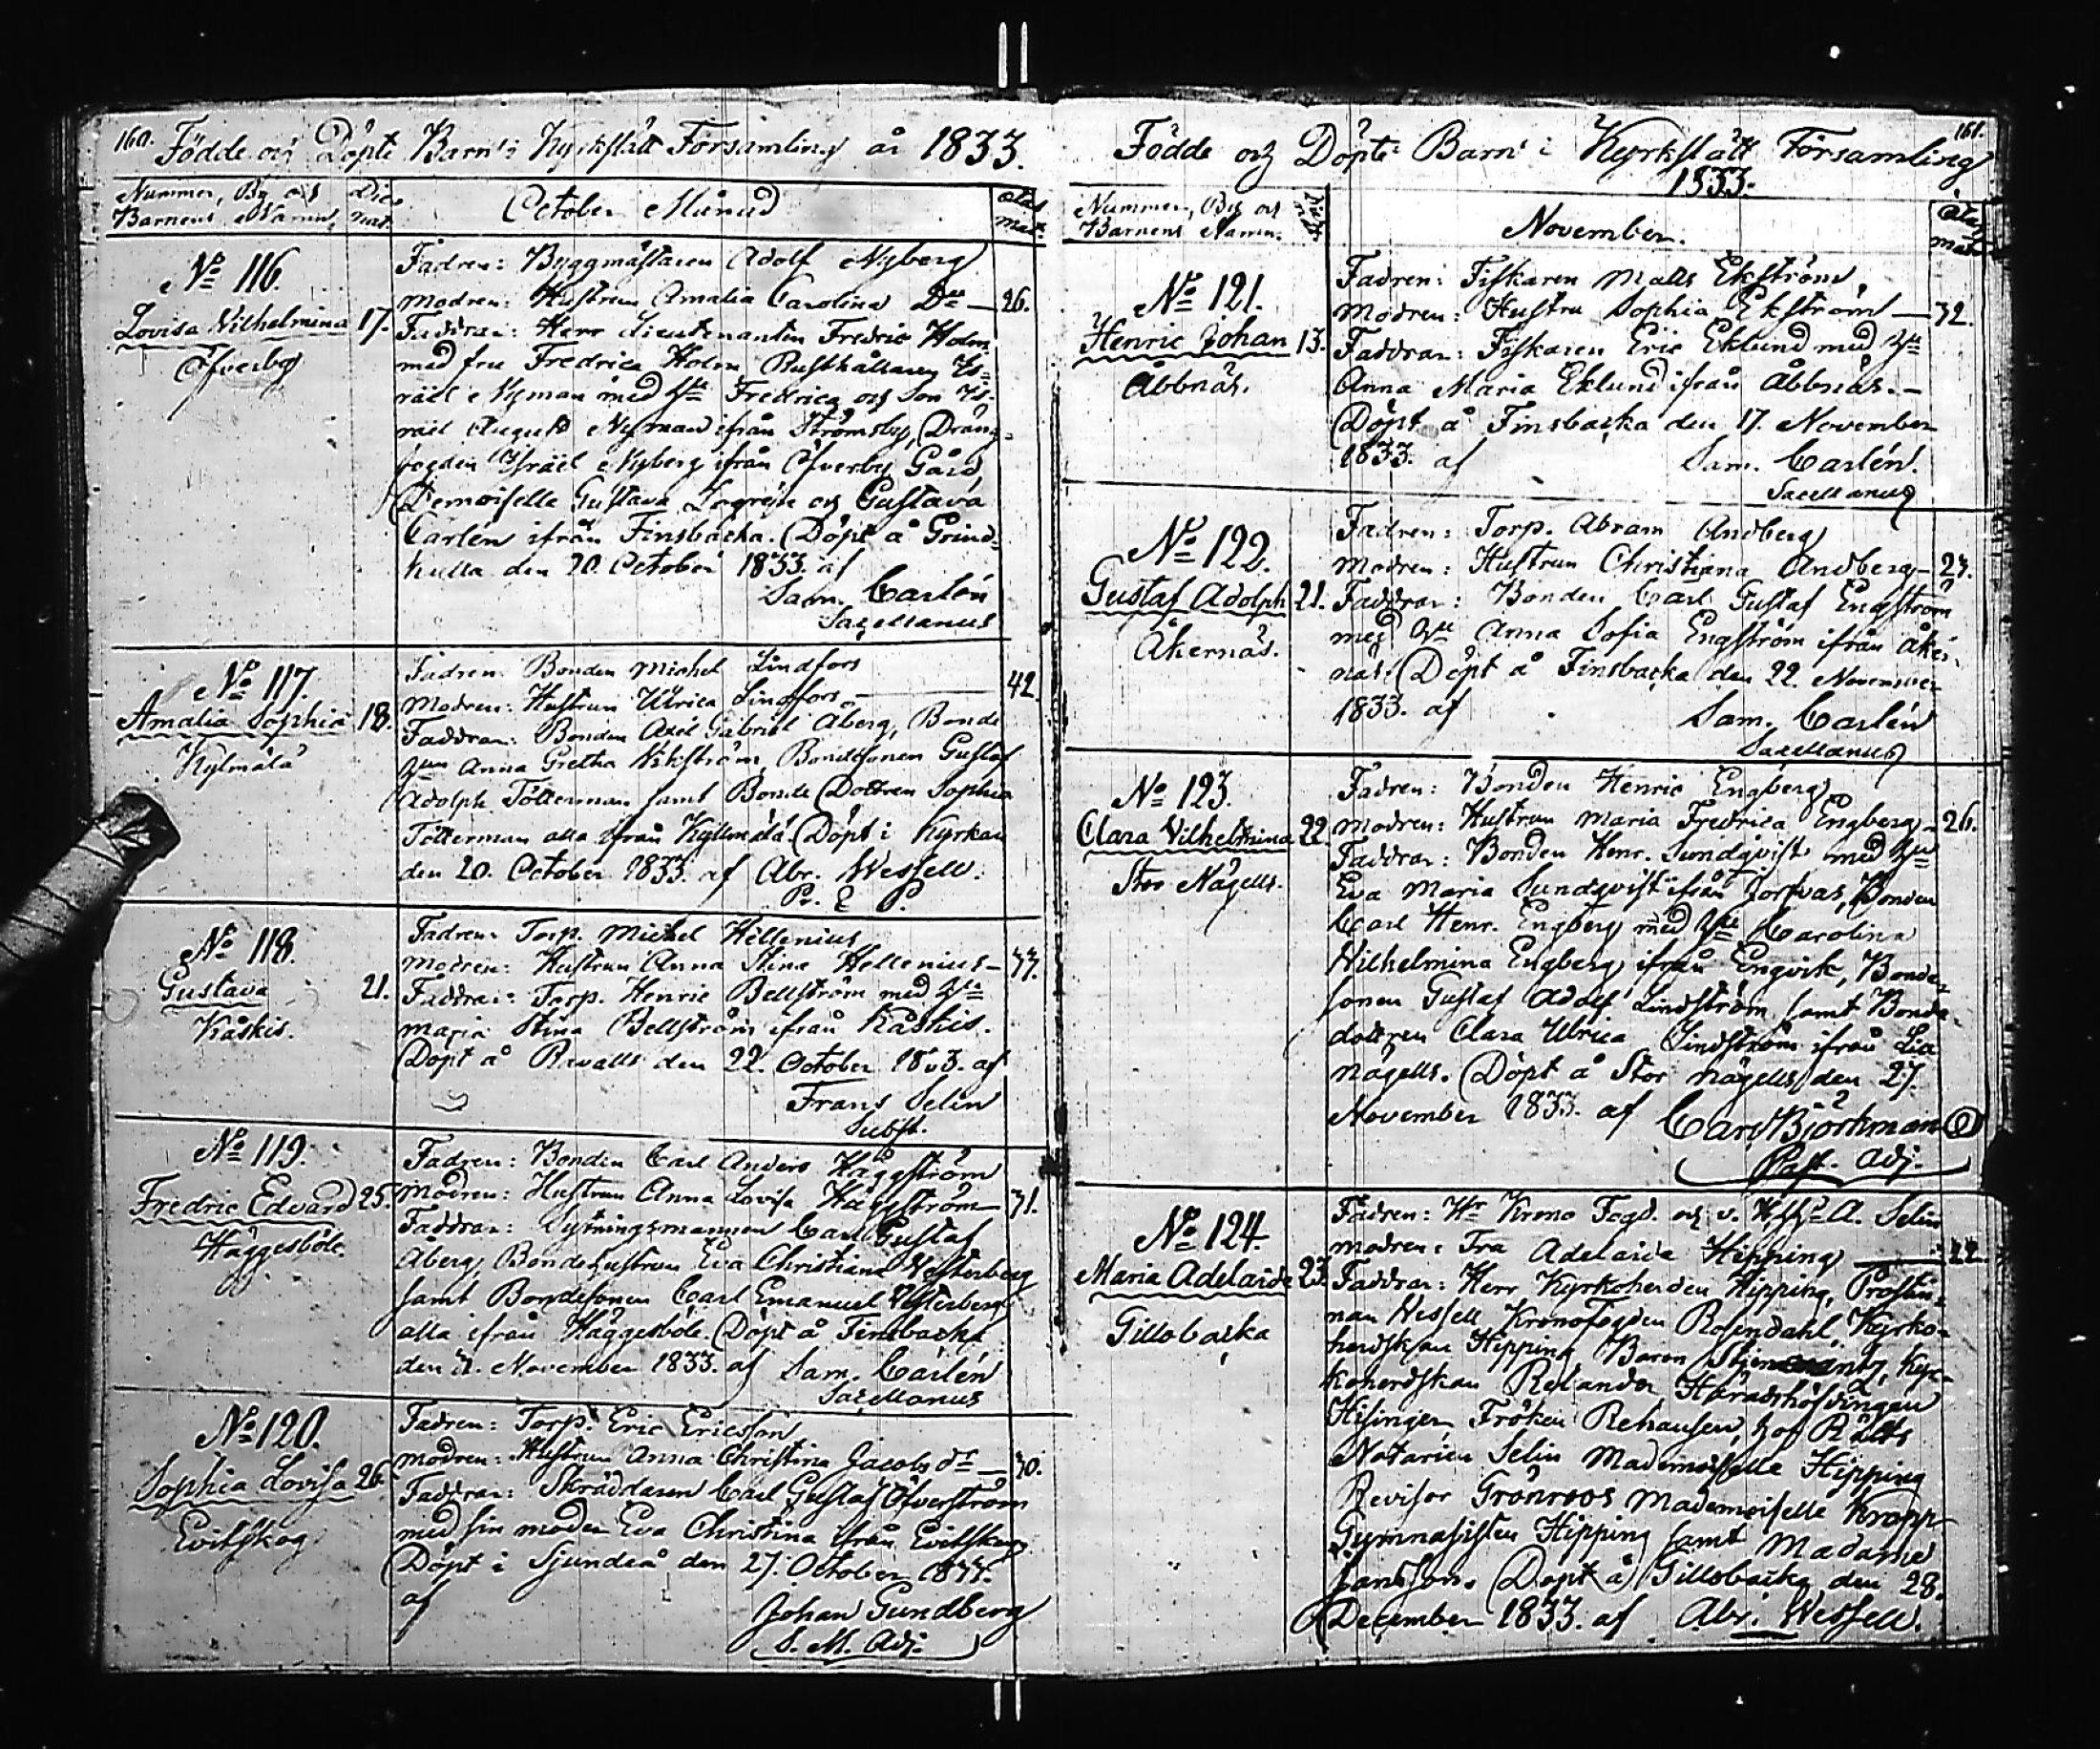 160. Födde och Döpte Barn i Kyrkslätt Församling år 1833.
Nummer, By och Barnens Namn. Die nat. October Månad ætas mat.
No 116.
Lovisa Wilhelmina 17.
Öfverby
Fadren: Byggmästaren Adolf Nyberg
Modren: Hustrun Amalia Carolina Do — 26.
Faddrar: Herr Lieutenanten Fredric Holm
med fru Fredrica Holm Rusthållaren Is-
raël Nyman med Hu Fredrica och Son Is-
rael August Nyman ifrån Strömsby, Dräng-
fogden Israël Nyberg ifrån Öfverby Gård
Demoiselle Gustava och Gustava
Carlén ifrån Finsbacka. Döpt å Grind-
hulla den 20. October 1833. af
Sam. Carlén
Sacellanus
No 117.
Amalia Sophia 18.
Kylmälä
Fadren: Bonden Michel Lindfors
Modren: Hustrun Ulrica Lindfors. — 42.
Faddrar: Bonden Axel Gabriel Åberg, Bonde
Hun Anna Gretha Wikström, Bondesonen Gustaf
Adolph Tötterman samt Bonde Dottren Sophia
Tötterman alla ifrån Kylmälä. Döpt i Kyrkan
den 20. October 1833. af Abr. Wessell.
P. & P.
No 118.
Gustava 21.
Kåskis.
Fadren: Torp. Michel Hellenius
Modren: Hustrun Anna Stina Hellenius — 37.
Faddrar: Torp. Henric Bellström med Hu
Maria Stina Bellström ifrån Kåskis.
Döpt å Ravalls den 22. October 1833. af
Frans Selin
Subst.
No 119.
Fredric Edvard 25.
Häggesböle
Fadren: Bonden Carl Anders Häggström
Modren: Hustrun Anna Lovisa Häggström — 31.
Faddrar: Lysningsmannen Carl Gustaf
Åberg, Bondehustrun Eva Christiana Westerberg
samt Bondesonen Carl Emanuel Westerberg
alla ifrån Häggesböle. Döpt å Finsbacka
den 3. November 1833. af Sam. Carlén
Sacellanus
No 120.
Sophia Lovisa 26.
Evitskog
Fadren: Torp. Eric Ericsson
Modren: Hustrun Anna Christina Jacobs dr — 30.
Faddrar: Skräddaren Carl Gustaf Öfverström
med sin moder Eva Christina ifrån Evitskog
Döpt i Sjundeå den 27. October 1833.
af
Johan Gundberg
S. M. Adj.
161.
Födde och Döpte Barn i Kyrkslätt Församling
1833.
Nummer, By och Barnens Namn. Die nat. November. Ætas mat.
No 121.
Henric Johan 13.
Åbbnäs.
Fadren: Fiskaren Matts Ekström,
Modren: Hustru Sophia Ekström — 32.
Faddrar: Fiskaren Eric Eklund med Hu
Anna Maria Eklund ifrån Åbbnäs. —
Döpt å Finsbacka den 17. November
1833. af Sam. Carlén.
Sacellanus
No 122.
Gustaf Adolph 21.
Åkernäs.
Fadren: Torp. Abram Andberg
Modren: Hustrun Christiana Andberg — 23.
Faddrar: Bonden Carl Gustaf Engström
med Hu Anna Sofia Engström ifrån Åker-
näs. Döpt å Finsbacka den 22. November
1833. af Sam. Carlén
Sacellanus
No 123.
Clara Wilhelmina 22.
Stor Nägells.
Fadren: Bonden Henric Engberg
Modren: Hustrun Maria Fredrica Engberg — 26.
Faddrar: Bonden Henr. Sundqvist med Hu
Eva Maria Sundqvist ifrån Jorfvas, Bonden
Carl Henr. Engberg med Hu Carolina
Wilhelmina Engberg ifrån Engvik, Bonde-
sonen Gustaf Adolf Lindström samt Bonde-
dottren Clara Ulrica Lindström ifrån Lill
nägells. Döpt å Stor nägells den 27.
November 1833. af Carl Björkman
Past. Adj.
No 124.
Maria Adelaide 23.
Gillobacka
Fadren: Hr Krono Fogd. och v. A. Selin
Modren: Fru Adelaide Hipping — 22.
Faddrar: Herr Kyrkoherden Hipping, Prostin-
nan Wessell Kronofogden Rosendahl, Kyrko-
herdskan Hipping Baron Kyr-
koherdskan Relander Häradshöfdingen
Hisinger Fröken Rehausen, Hof Rätts
Notarien Selin Mademoiselle Hipping
Revisor Grönroos Mademoiselle Kropp
Gymnasisten Hipping samt Madame
Jansson. Döpt å Gillobacka den 28.
December 1833. af Abr. Wessell.